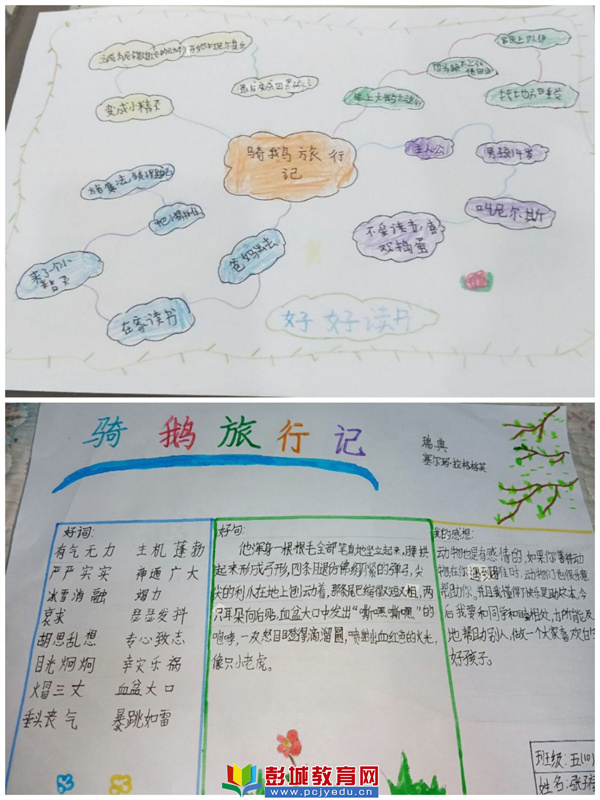 变成小精灵
骑鹅旅行
记
主人公
男孩14岁
叫尼尔斯
不爱读书喜
欢捣蛋
爸妈出去
在家读书
来了个小
精灵
好好读书
骑鹅旅行记
瑞典
塞尔玛·拉格洛芙
好词:
有气无力 生机蓬勃
严严实实 神通广大
冰雪消融 竭力
哀求 瑟瑟发抖
胡思乱想 专心致志
目光炯炯 幸灾乐祸
火冒三丈 血盆大口
垂头丧气 暴跳如雷
好句:
他浑身一根根毛全部笔直地竖立起来,腰拱
起来形成弓形,四条腿仿佛绷紧的弹弓,尖
尖的利爪在地上刨动着,那条尾巴缩得又短又粗,两
只耳朵向后贴,血盆大口中发出“嘶嘿嘶嘿”的
咆哮,一双怒目瞪得滴溜圆,喷射出血红色的火光,
像只小老虎。
的感想:
动物也是有感情的,如果你善待动
物在你遇到困难时,动物们也很乐意
帮助你,并且我懂得了快乐是助人为本,今
后我要和同学和睦相处,力所能及
地帮助别人,做一个大家喜欢的
好孩子。
班级:五(10)
姓名:张子
彭城教育网
www.pcjyedu.cn